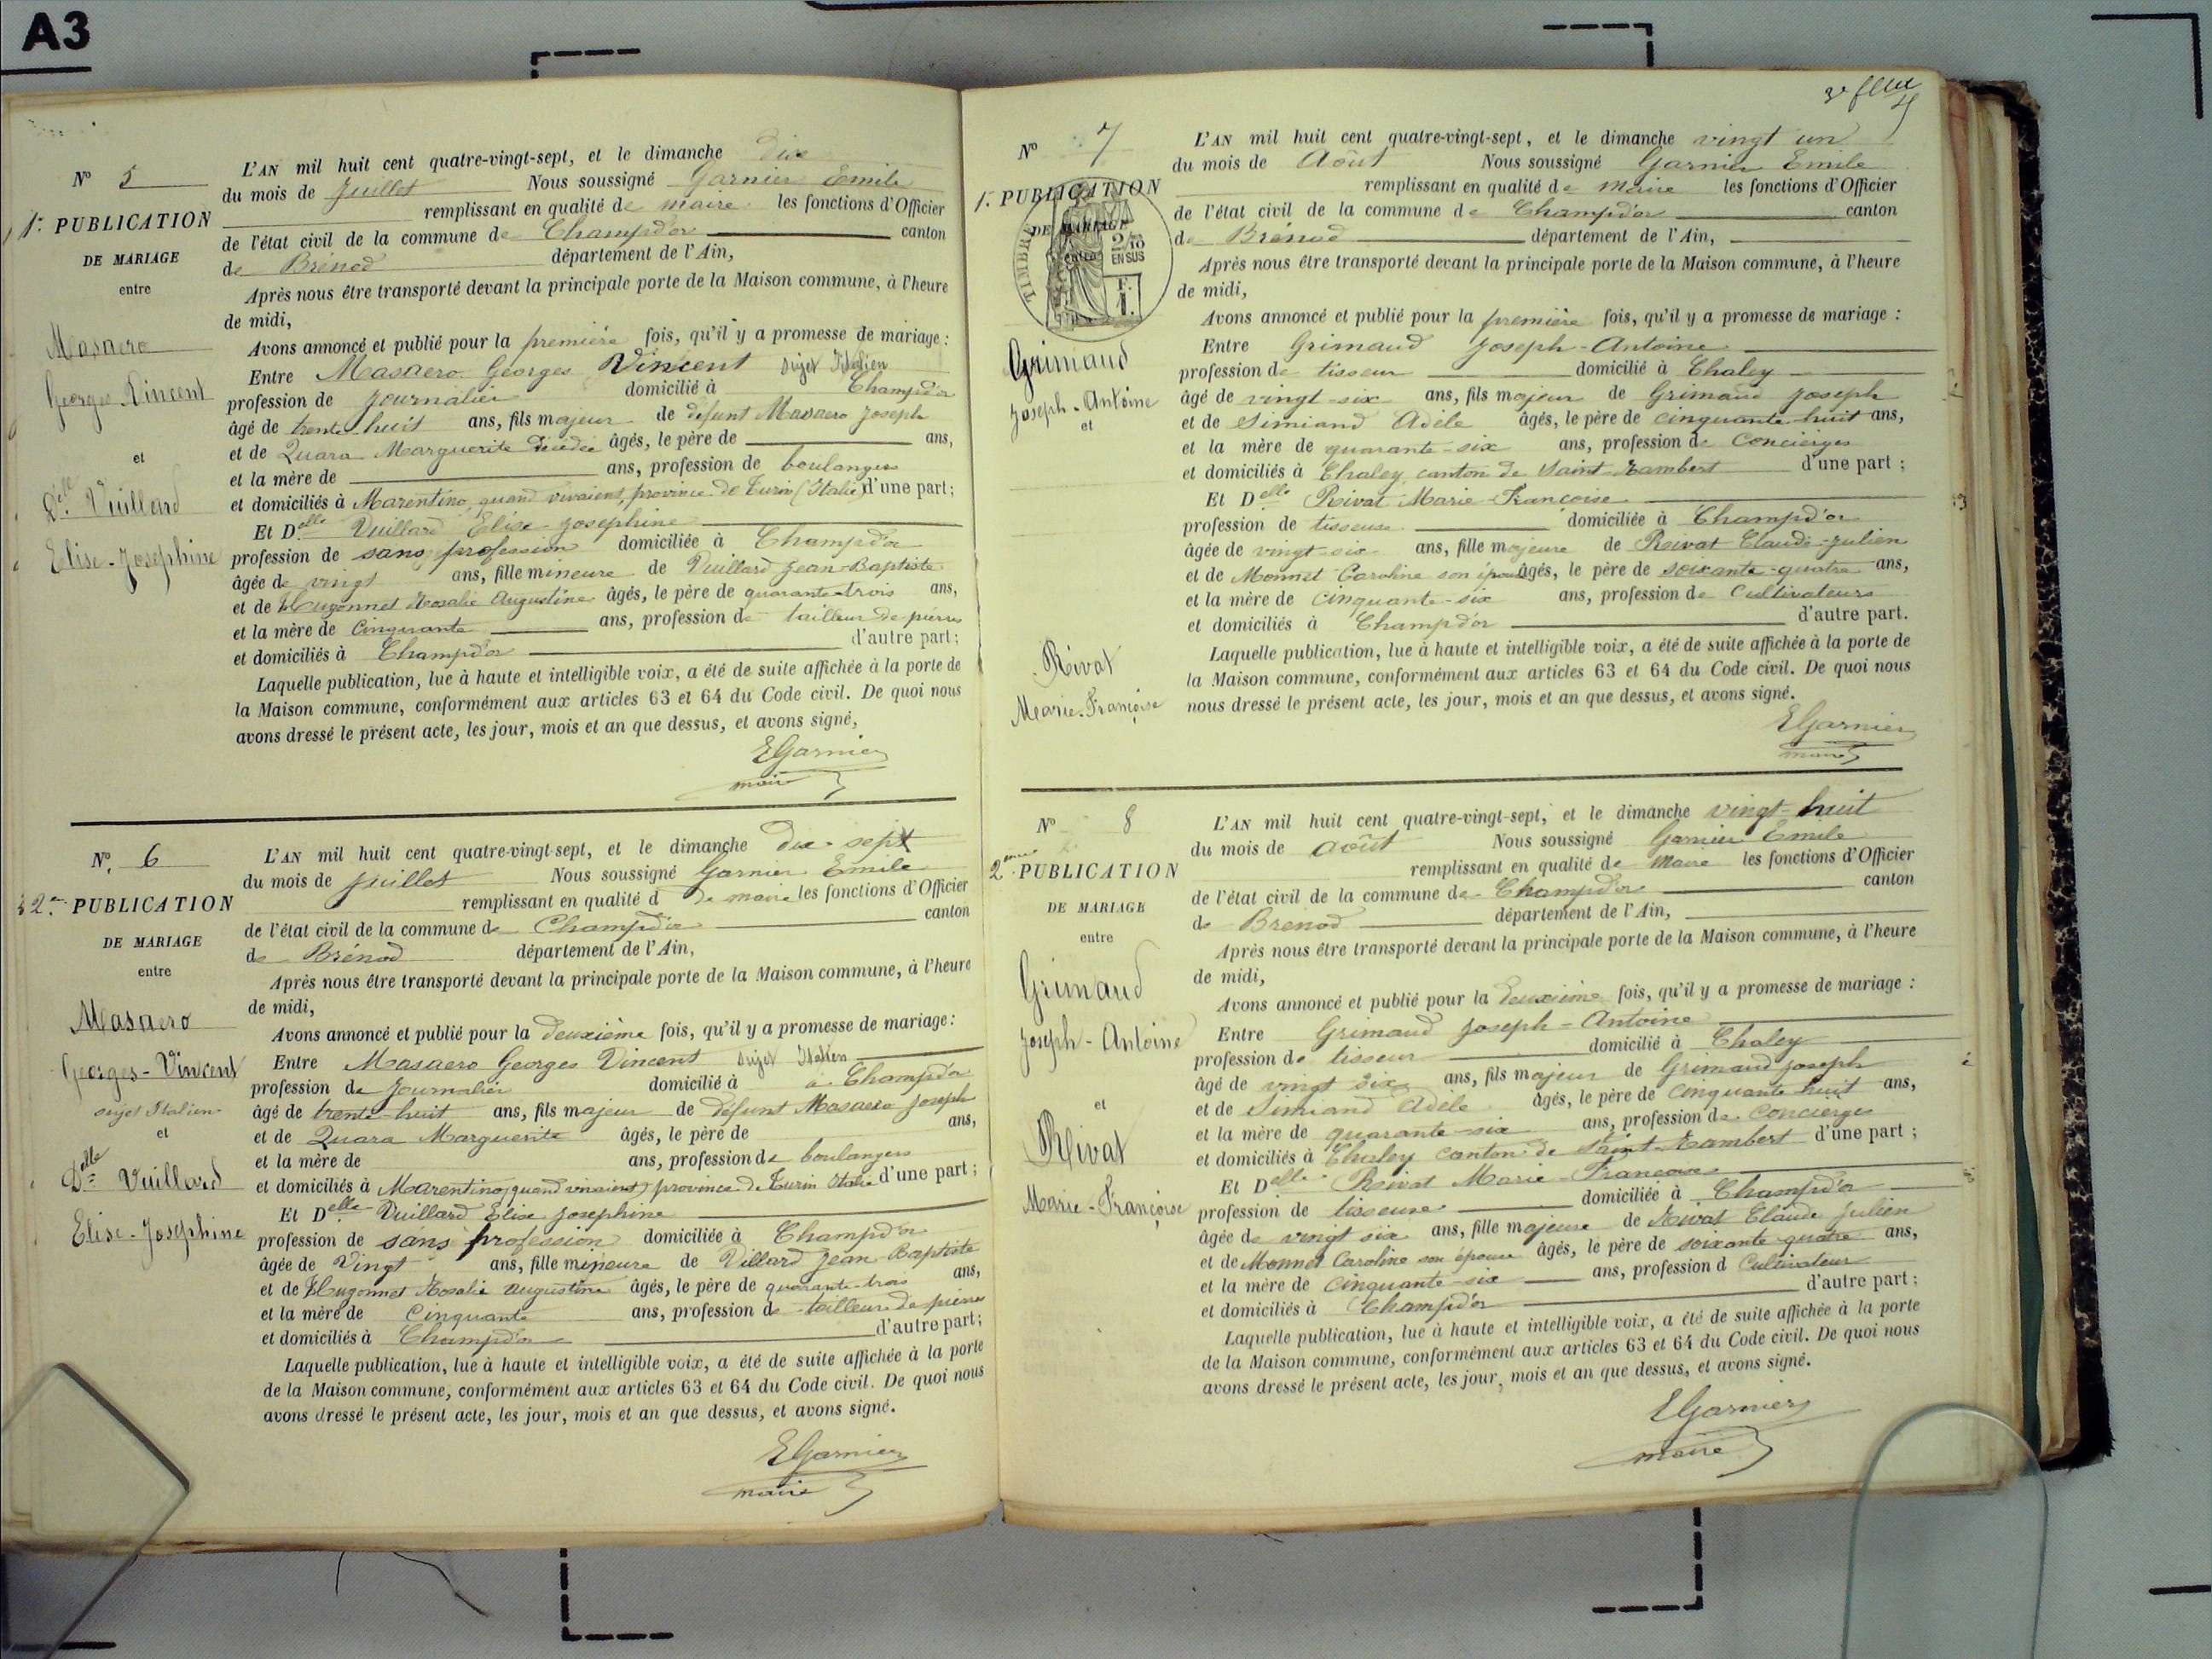 A3
N° 5
1re PUBLICATION
DE MARIAGE
entre
Masaero
Georges Vincent
et
Delle Vuillard
Elise-Joséphine
L'AN mil huit cent quatre-vingt-sept, et le dimanche dix
du mois de Juillet Nous soussigné Garnier Emile
remplissant en qualité de maire les fonctions d'Officier
de l'état civil de la commune de Champdor canton
de Brénod département de l'Ain,
Après nous être transporté devant la principale porte de la Maison commune, à l'heure
de midi,
Avons annoncé et publié pour la première fois, qu'il y a promesse de mariage :
Entre Masaero Georges Vincent sujet Italien
profession de Journalier domicilié à Champdor
âgé de trente-huit ans, fils majeur de défunt Masaero Joseph
et de Quara Marguerite décédée âgés, le père de ans,
et la mère de ans, profession de boulangers
et domiciliés à Marentino, quand vivaient, province de Turin (Italie) d'une part;
Et Delle Vuillard Elise Joséphine
profession de sans profession domiciliée à Champdor
âgée de vingt ans, fille mineure de Vuillard Jean-Baptiste
et de Hugonnet Rosalie Augustine âgés, le père de quarante-trois ans,
et la mère de Cinquante ans, profession de tailleur de pierres
et domiciliés à Champdor d'autre part;
Laquelle publication, lue à haute et intelligible voix, a été de suite affichée à la porte de
la Maison commune, conformément aux articles 63 et 64 du Code civil. De quoi nous
avons dressé le présent acte, les jour, mois et an que dessus, et avons signé,
EGarnier
maire
N° 6
2me PUBLICATION
DE MARIAGE
entre
Masaero
Georges-Vincent
sujet Italien
et
Delle Vuillard
Elise-Joséphine
L'AN mil huit cent quatre-vingt-sept, et le dimanche dix-sept
du mois de Juillet Nous soussigné Garnier Emile
remplissant en qualité d de maire les fonctions d'Officier
de l'état civil de la commune de Champdor canton
de Brénod département de l'Ain,
Après nous être transporté devant la principale porte de la Maison commune, à l'heure
de midi,
Avons annoncé et publié pour la deuxième fois, qu'il y a promesse de mariage:
Entre Masaero Georges Vincent sujet Italien
profession de Journalier domicilié à à Champdor
âgé de trente-huit ans, fils majeur de défunt Masaero Joseph
et de Quara Marguerite âgés, le père de ans,
et la mère de ans, profession de boulangers
et domiciliés à Marentino, (quand vivaient) province de Turin Italie d'une part;
Et Delle Vuillard Elise Josephine
profession de sans profession domiciliée à Champdor
âgée de Vingt ans, fille mineure de Villard Jean Baptiste
et de Hugonnet Rosalie Augustine âgés, le père de quarante-trois ans,
et la mère de Cinquante ans, profession de tailleur de pierres
et domiciliés à Champdor d'autre part;
Laquelle publication, lue à haute et intelligible voix, a été de suite affichée à la porte
de la Maison commune, conformément aux articles 63 et 64 du Code civil. De quoi nous
avons dressé le présent acte, les jour, mois et an que dessus, et avons signé.
EGarnier
maire
4
N° 7
1. PUBLICATION
DE MARIAGE
entre
TIMBRE
2/10
EN SUS
F.
1.
Grimaud
Joseph-Antoine
et
Rivat
Marie-Françoise
L'AN mil huit cent quatre-vingt-sept, et le dimanche vingt un
du mois de Août Nous soussigné Garnier Emile
remplissant en qualité de maire les fonctions d'Officier
de l'état civil de la commune de Champdor canton
de Brénod département de l'Ain,
Après nous être transporté devant la principale porte de la Maison commune, à l'heure
de midi,
Avons annoncé et publié pour la première fois, qu'il y a promesse de mariage :
Entre Grimaud Joseph-Antoine
profession de tisseur domicilié à Chaley
âgé de vingt-six ans, fils majeur de Grimaud Joseph
et de Simiand Adèle âgés, le père de cinquante-huit ans,
et la mère de quarante-six ans, profession de Concierges
et domiciliés à Chaley, canton de Saint-Rambert d'une part ;
Et Delle Rivat Marie-Françoise
profession de tisseuse domiciliée à Champdor
âgée de vingt-six ans, fille majeure de Rivat Claude-Julien
et de Monnet Caroline son épouse âgés, le père de soixante-quatre ans,
et la mère de Cinquante-six ans, profession de Cultivateurs
et domiciliés à Champdor d'autre part.
Laquelle publication, lue à haute et intelligible voix, a été de suite affichée à la porte de
la Maison commune, conformément aux articles 63 et 64 du Code civil. De quoi nous
nous dressé le présent acte, les jour, mois et an que dessus, et avons signé.
EGarnier
maire
N° 8
2eme PUBLICATION
DE MARIAGE
entre
Grimaud
Joseph-Antoine
et
Rivat
Marie-Françoise
L'AN mil huit cent quatre-vingt-sept, et le dimanche vingt-huit
du mois de août Nous soussigné Garnier Emile
remplissant en qualité de Maire les fonctions d'Officier
de l'état civil de la commune de Champdor canton
de Brenod département de l'Ain,
Après nous être transporté devant la principale porte de la Maison commune, à l'heure
de midi,
Avons annoncé et publié pour la deuxième fois, qu'il y a promesse de mariage :
Entre Grimaud Joseph-Antoine
profession de tisseur domicilié à Chaley
âgé de vingt six ans, fils majeur de Grimaud Joseph
et de Simiand Adèle âgés, le père de Cinquante huit ans,
et la mère de quarante-six ans, profession de Concierges
et domiciliés à Chaley canton de Saint-Rambert d'une part ;
Et Delle Rivat Marie-Françoise
profession de tisseuse domiciliée à Champdor
âgée de vingt six ans, fille majeure de Rivat Claude Julien
et de Monnet Caroline son épouse âgés, le père de soixante quatre ans,
et la mère de Cinquante-six ans, profession d Cultivateur
et domiciliés à Champdor d'autre part ;
Laquelle publication, lue à haute et intelligible voix, a été de suite affichée à la porte
de la Maison commune, conformément aux articles 63 et 64 du Code civil. De quoi nous
avons dressé le présent acte, les jour, mois et an que dessus, et avons signé.
EGarnier
maire